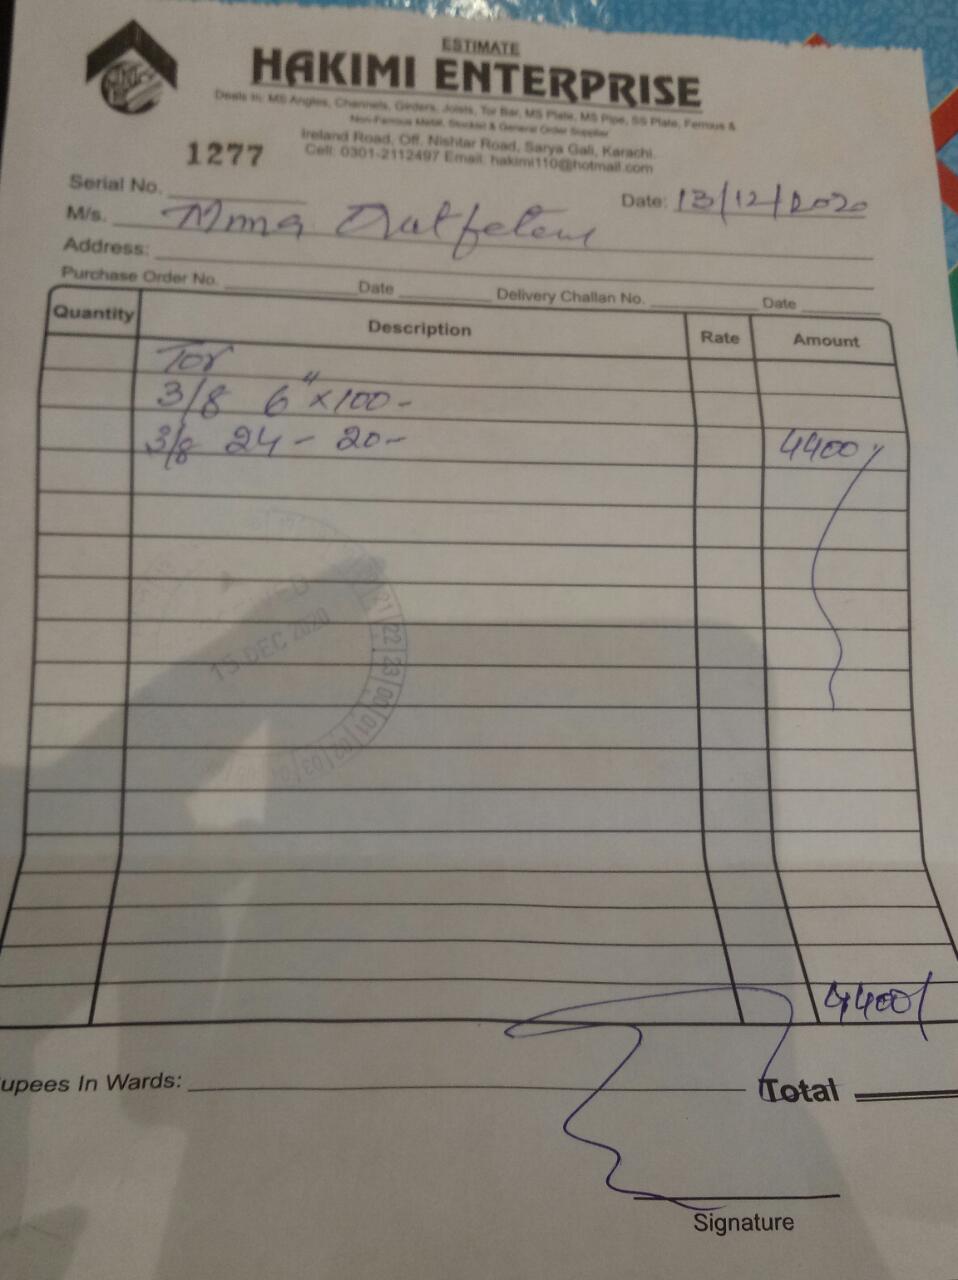 ESTIMATE
HAKIMI ENTERPRISE
Deals In: MS Angles, Channels, Girders, Joists, Tor Bar, MS Plate, MS Pipe, SS Plate, Femous &
Non-Famous Metal, Stockist & General Order Supplier
Ireland Road, Off. Nishtar Road, Sarya Gali, Karachi.
Cell: 0301-2112497 Email: hakimi110@hotmail.com
1277
Serial No. Date: 13/12/2020
M/s.
Address:
Purchase Order No. Date Delivery Challan No. Date
Quantity Description Rate Amount
Tor
3/8 6" x 100 -
3/8 24 - 20 - 4400/
15 DEC 2020
21 22 23 00 01 02 03 04
4400/
upees In Wards: Total
Signature